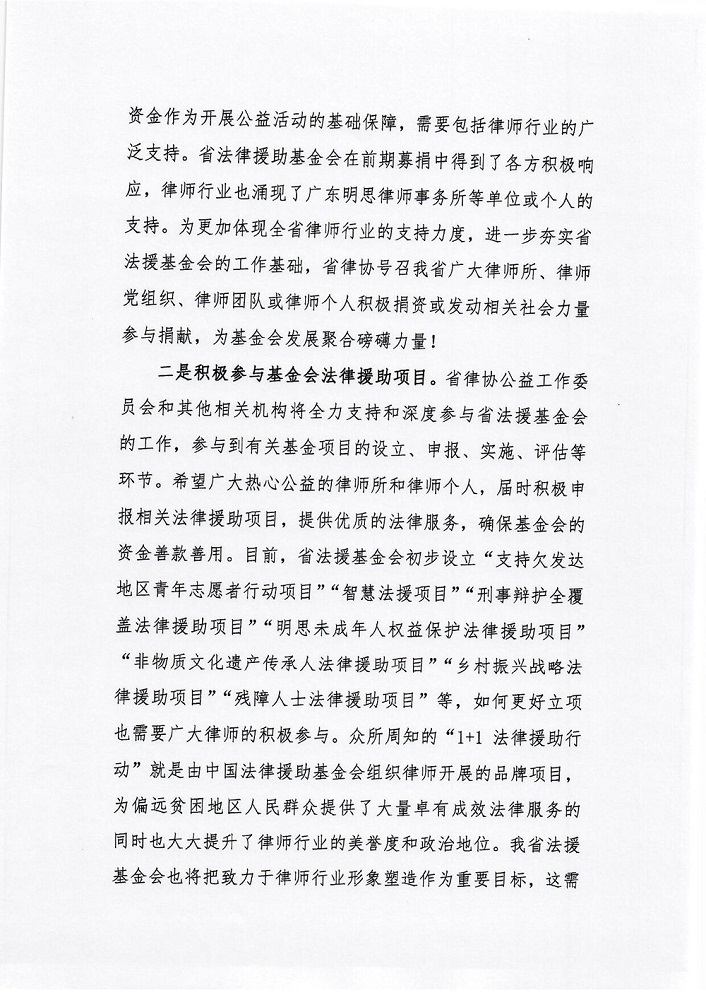 资金作为开展公益活动的基础保障，需要包括律师行业的广
泛支持。省法律援助基金会在前期募捐中得到了各方积极响
应，律师行业也涌现了广东明思律师事务所等单位或个人的
支持。为更加体现全省律师行业的支持力度，进一步夯实省
法援基金会的工作基础，省律协号召我省广大律师所、律师
党组织、律师团队或律师个人积极捐资或发动相关社会力量
参与捐献，为基金会发展聚合磅礴力量！
二是积极参与基金会法律援助项目。省律协公益工作委
员会和其他相关机构将全力支持和深度参与省法援基金会
的工作，参与到有关基金项目的设立、申报、实施、评估等
环节。希望广大热心公益的律师所和律师个人，届时积极申
报相关法律援助项目，提供优质的法律服务，确保基金会的
资金善款善用。目前，省法援基金会初步设立“支持欠发达
地区青年志愿者行动项目”“智慧法援项目”“刑事辩护全覆
盖法律援助项目”“明思未成年人权益保护法律援助项目”
“非物质文化遗产传承人法律援助项目”“乡村振兴战略法
律援助项目”“残障人士法律援助项目”等，如何更好立项
也需要广大律师的积极参与。众所周知的“1+1 法律援助行
动”就是由中国法律援助基金会组织律师开展的品牌项目，
为偏远贫困地区人民群众提供了大量卓有成效法律服务的
同时也大大提升了律师行业的美誉度和政治地位。我省法援
基金会也将把致力于律师行业形象塑造作为重要目标，这需